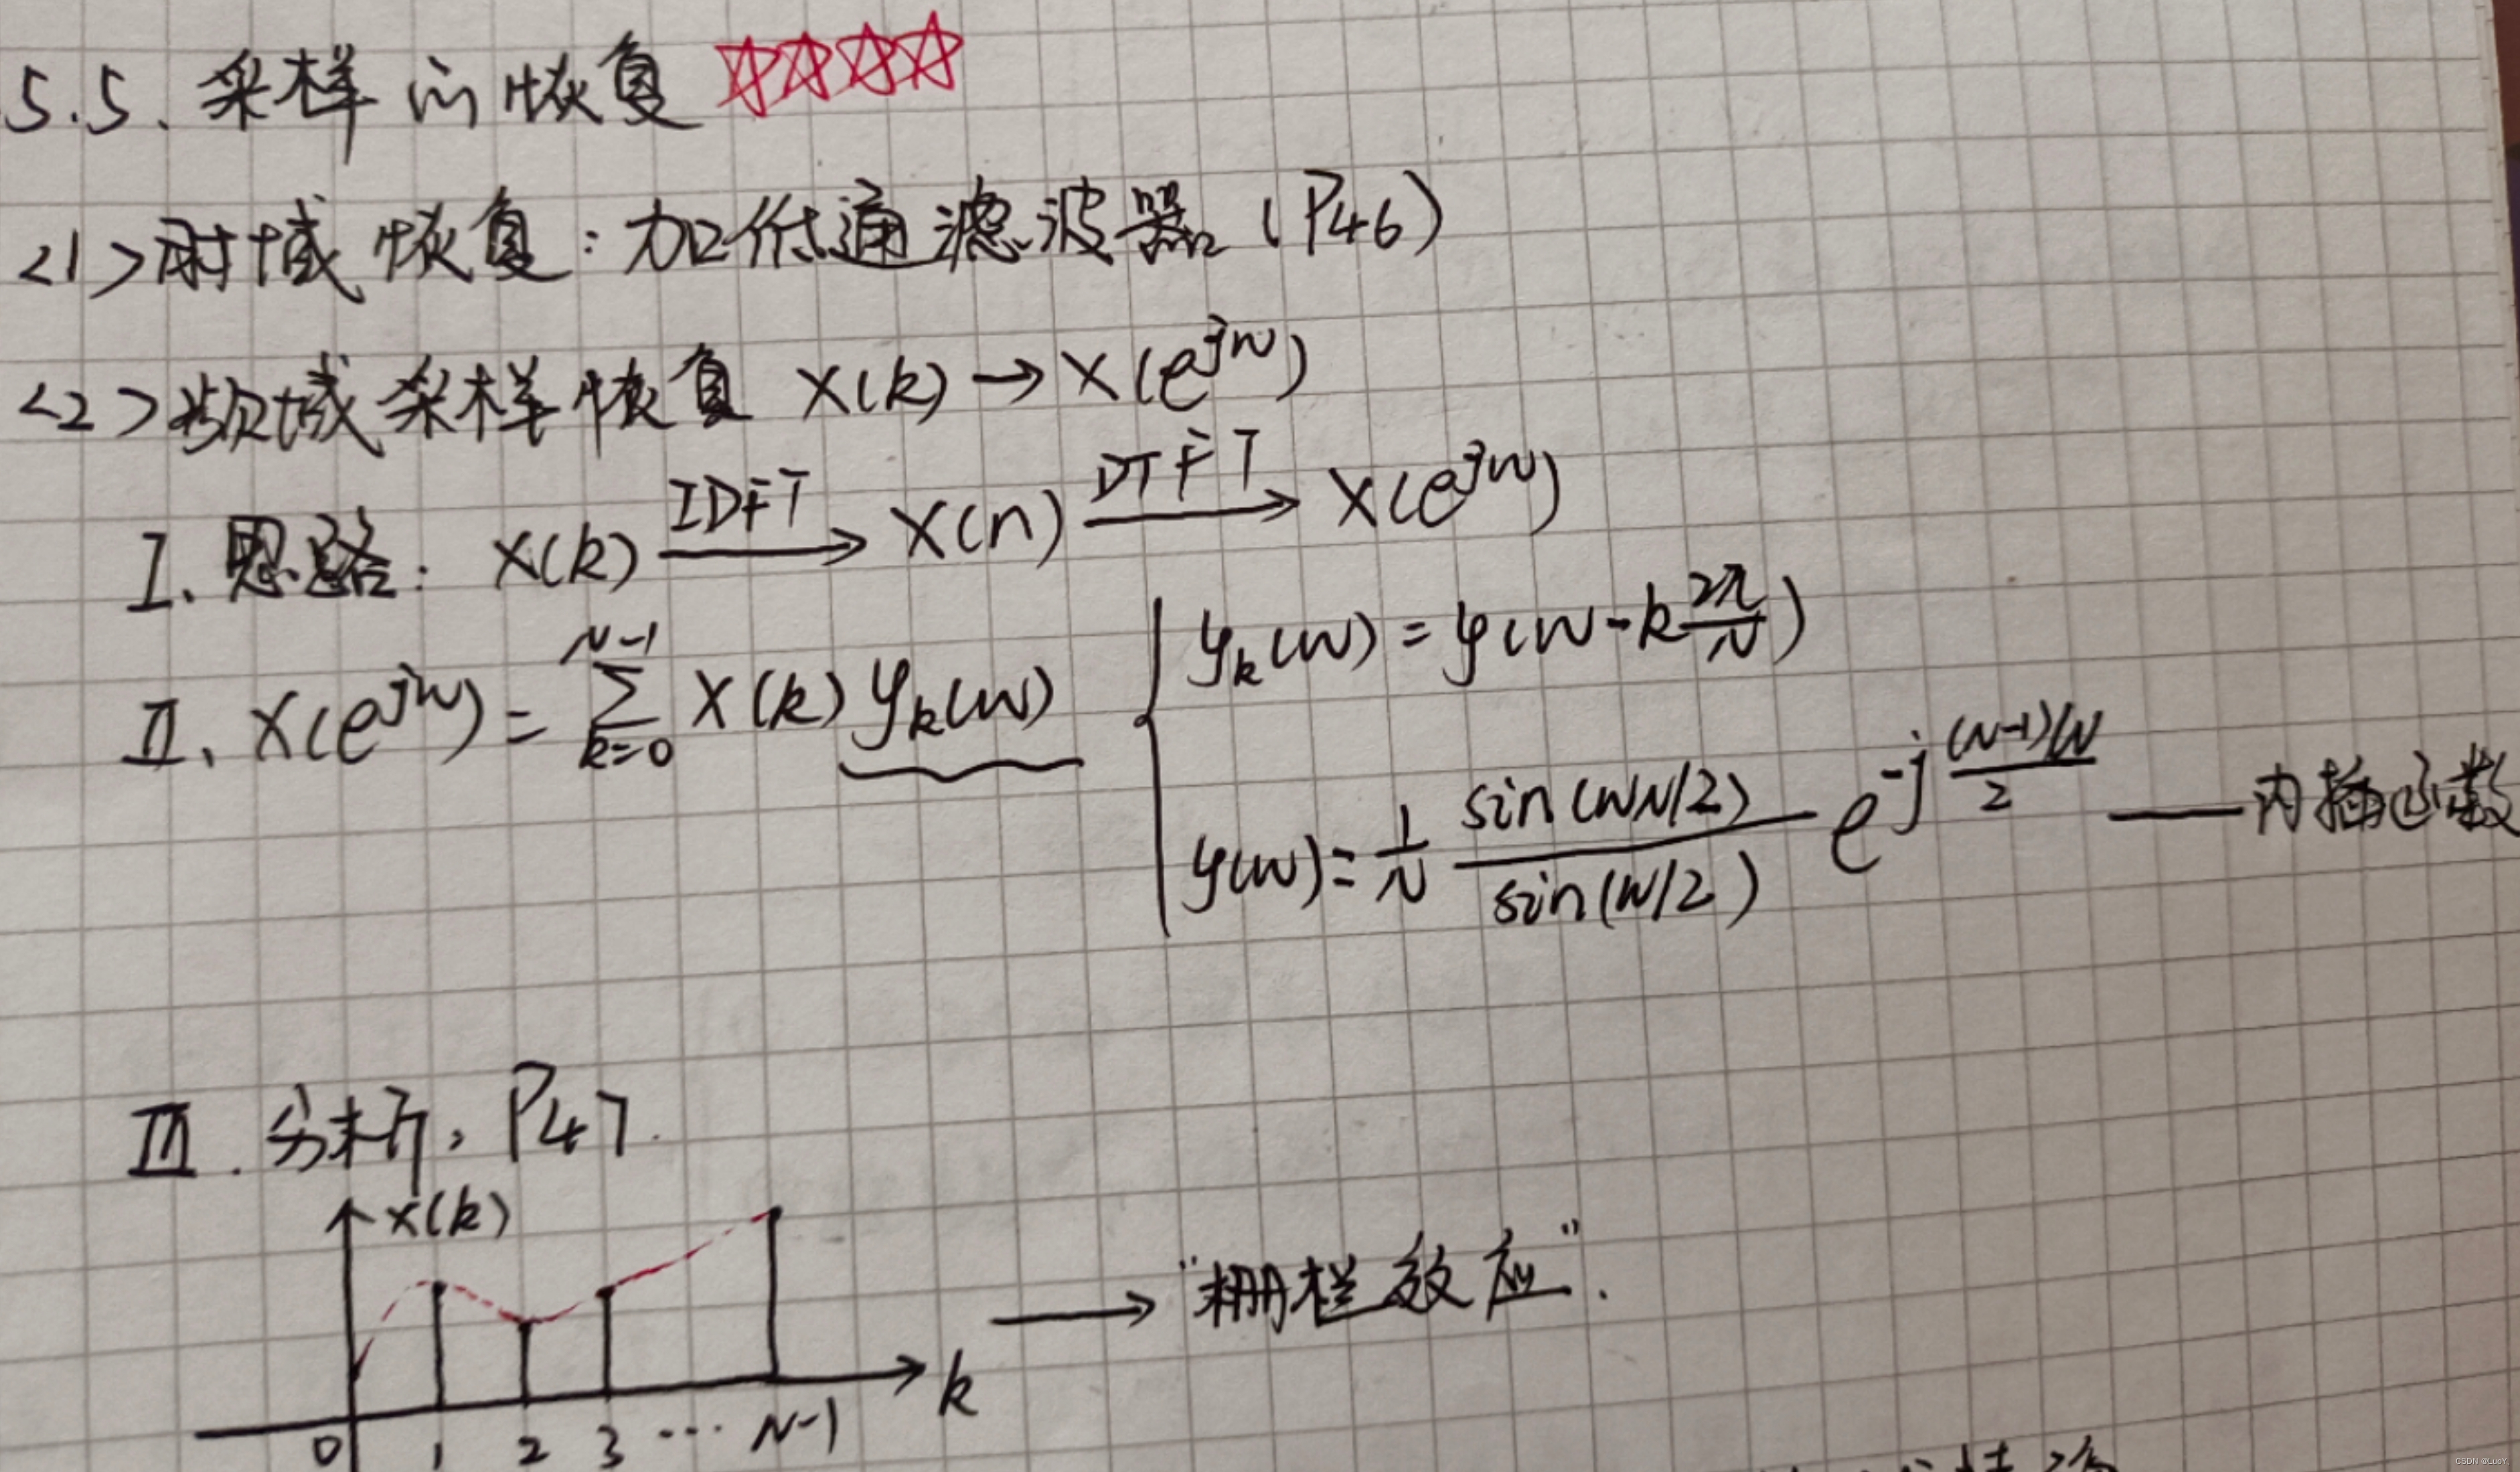 5.5. 采样的恢复 ☆☆☆☆
<1>时域恢复：加低通滤波器（P46）
<2>频域采样恢复 X(k)→X(e^{jw})
I. 思路：X(k) \xrightarrow{IDFT} X(n) \xrightarrow{DTFT} X(e^{jw})
II. X(e^{jw}) = \sum_{k=0}^{N-1} X(k) φ_k(w)
φ_k(w) = φ(w-k\frac{2π}{N})
φ(w) = \frac{1}{N} \frac{sin(wN/2)}{sin(w/2)} e^{-j\frac{(N-1)w}{2}} ——内插函数
III. 分析，P47.
X(k)
→ “栅栏效应”.
k
0 1 2 3 … N-1
CSDN @LuoY